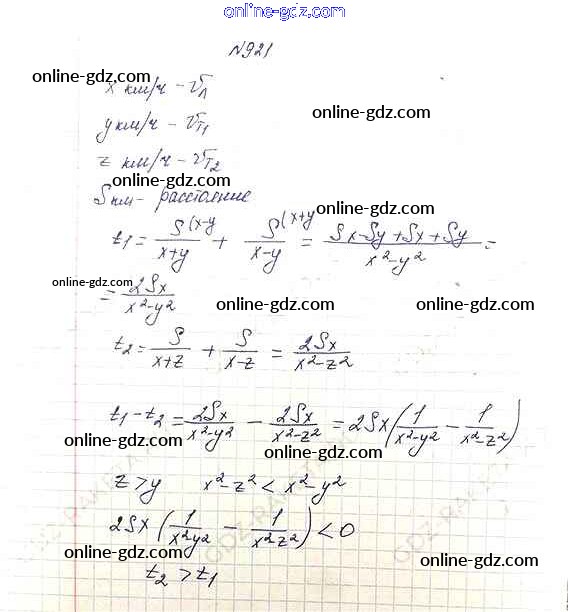 online-gdz.com
online-gdz.com
N921
online-gdz.com
x км/ч - υл
online-gdz.com
y км/ч - υт1
z км/ч - υт2
online-gdz.com
S км - расстояние
online-gdz.com
t1 = S(x-y / x+y + S(x+y / x-y = Sx-Sy+Sx+Sy / x²-y² =
online-gdz.com
= 2Sx / x²-y²
online-gdz.com online-gdz.com
t2 = S / x+z + S / x-z = 2Sx / x²-z²
online-gdz.com
t1 - t2 = 2Sx / x²-y² - 2Sx / x²-z² = 2Sx (1 / x²-y² - 1 / x²-z²)
online-gdz.com online-gdz.com
z > y x²-z² < x²-y²
online-gdz.com
2Sx (1 / x²y² - 1 / x²z²) < 0
online-gdz.com online-gdz.com
t2 > t1